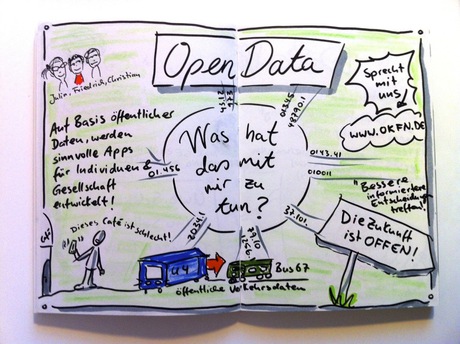 Open Data
Julia, Friedrich, Christian
Auf Basis öffentlicher
Daten, werden
sinnvolle Apps
für Individuen &
Gesellschaft
entwickelt!
Sprecht
mit
uns
www.OKFN.DE
Was hat
das mit
mir zu
tun?
01345
48790.1
01.456
0143.41
010011
2034.1
37.101
"Bessere
informiertere
Entscheidungen
treffen!"
Die Zukunft
ist OFFEN!
Dieses Café ist schlecht!
Café
U4
Bus 67
öffentliche Verkehrsdaten